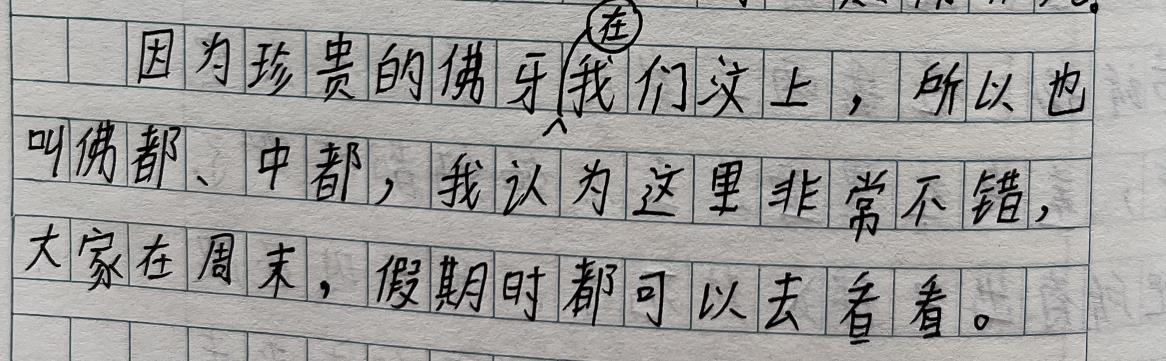 因为珍贵的佛牙在我们汶上，所以也
叫佛都、中都，我认为这里非常不错，
大家在周末，假期时都可以去看看。